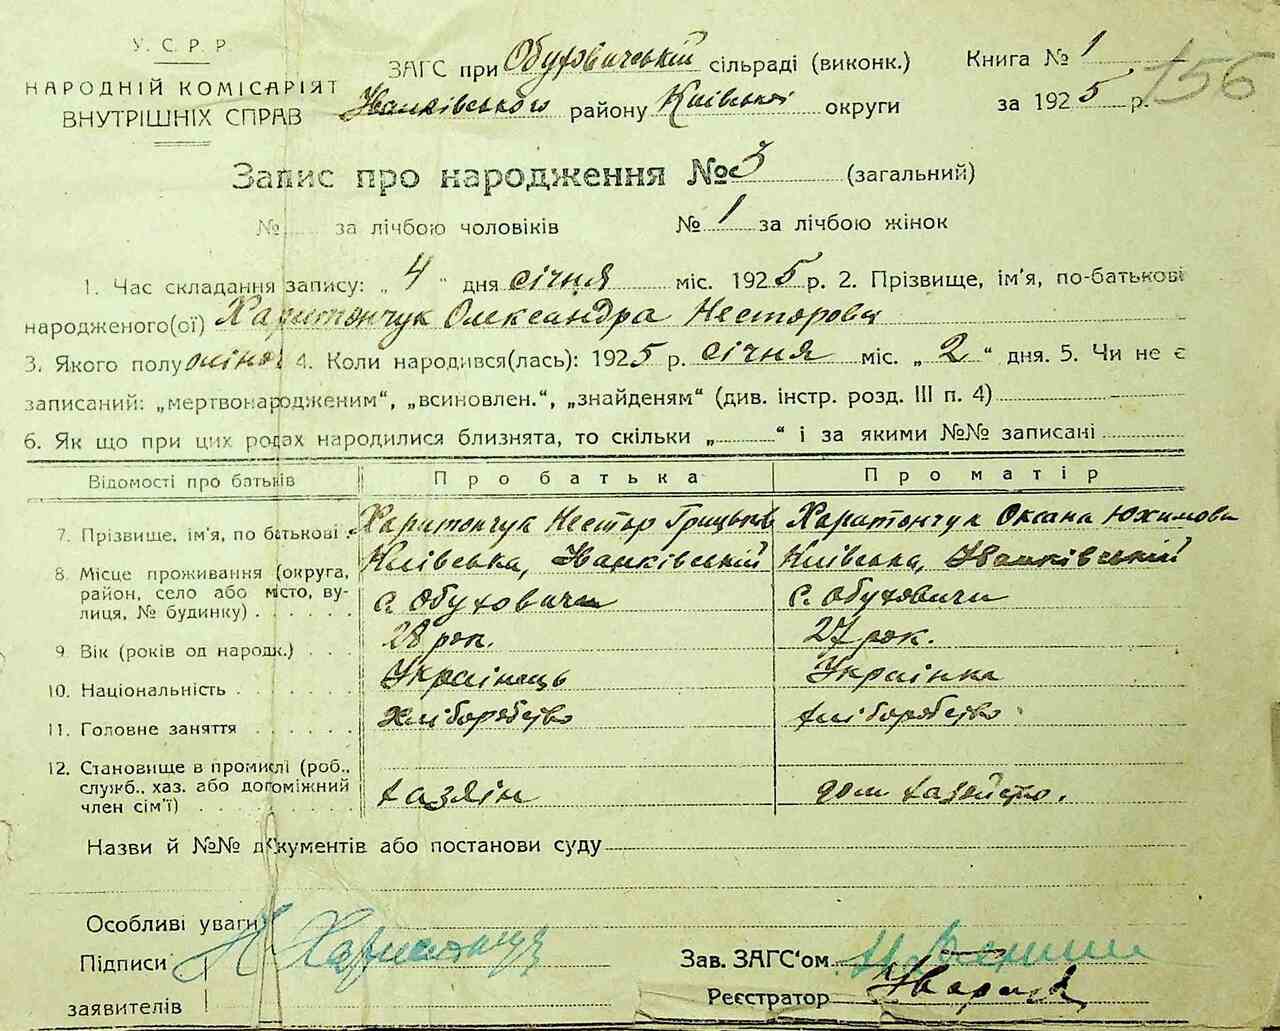 У. С. Р. Р.
НАРОДНІЙ КОМІСАРІЯТ
ВНУТРІШНІХ СПРАВ
ЗАГС при Обуховичській сільраді (виконк.) Книга № 1
156
Іванківського району Київської округи за 1925 р.
Запис про народження № 3 (загальний)
№ за лічбою чоловіків № 1 за лічбою жінок
1. Час складання запису: „4“ дня січня міс. 1925 р. 2. Прізвище, ім'я, по-батькові
народженого(ої) Харитончук Олександра Несторова
3. Якого полу жіноч 4. Коли народився(лась): 1925 р. січня міс. „2“ дня. 5. Чи не є
записаний: „мертвонародженим“, „всиновлен.“, „знайденям“ (див. інстр. розд. III п. 4)
6. Як що при цих родах народилися близнята, то скільки „ “ і за якими №№ записані
Відомості про батьків Про батька Про матір
7. Прізвище, ім'я, по батькові Харитончук Нестор Грицьків Харитончук Оксана Юхимова
8. Місце проживання (округа, Київська, Іванківській Київська, Іванківській
район, село або місто, ву- с. Обуховичи с. Обуховичи
лиця, № будинку)
9. Вік (років од народж.) 28 рок. 27 рок.
10. Національність Українець Українка
11. Головне заняття хліборобство хліборобство
12. Становище в промислі (роб.,
служб., хаз. або догоміжний
член сім'ї) хазяін дом. хазяйство.
Назви й №№ документів або постанови суду
Особливі уваги
Підписи Н Харитончук Зав. ЗАГС'ом
заявителів Реєстратор